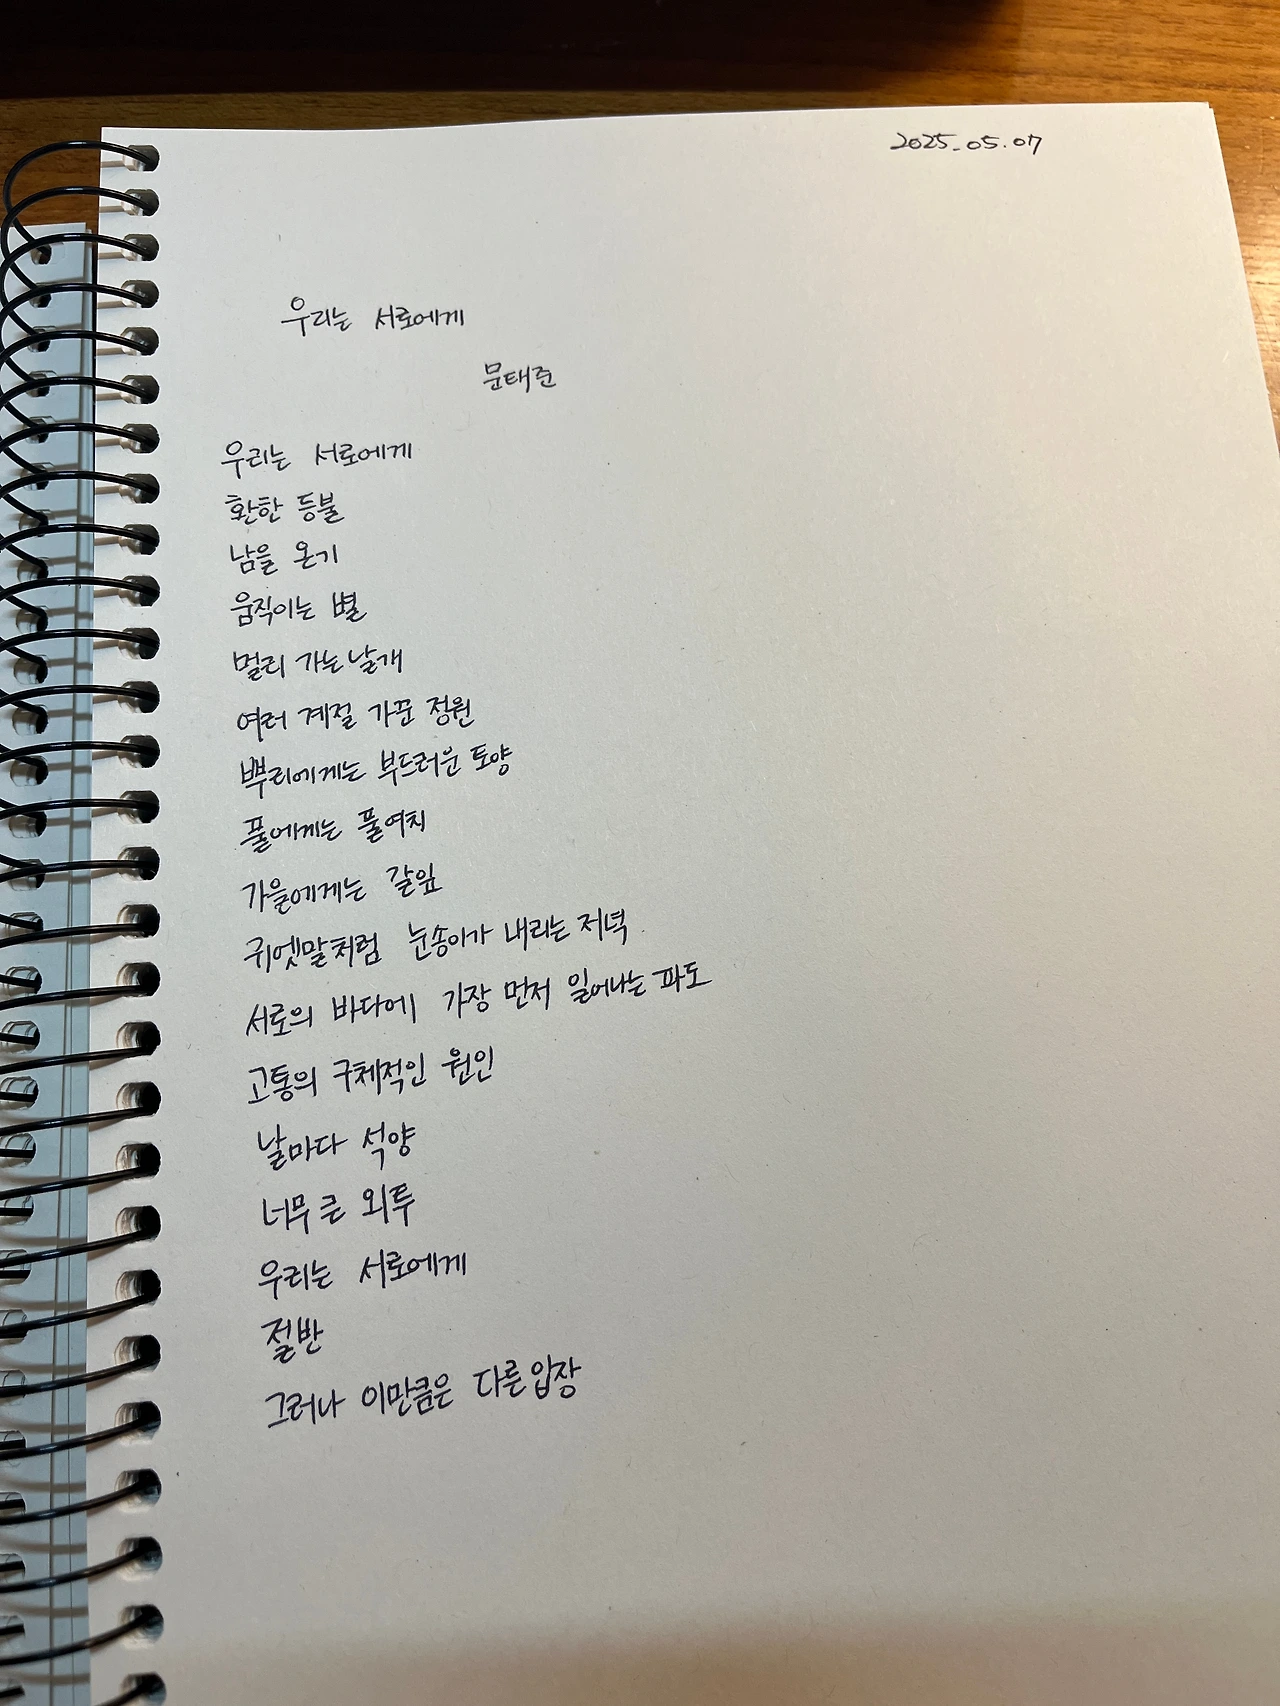 2025.05.07
우리는 서로에게
문태준
우리는 서로에게
환한 등불
남을 온기
움직이는 별
멀리 가는 날개
여러 계절 가꾼 정원
뿌리에게는 부드러운 토양
풀에게는 풀여치
가을에게는 갈잎
귀엣말처럼 눈송이가 내리는 저녁
서로의 바다에 가장 먼저 일어나는 파도
고통의 구체적인 원인
날마다 석양
너무 큰 외투
우리는 서로에게
절반
그러나 이만큼은 다른 입장